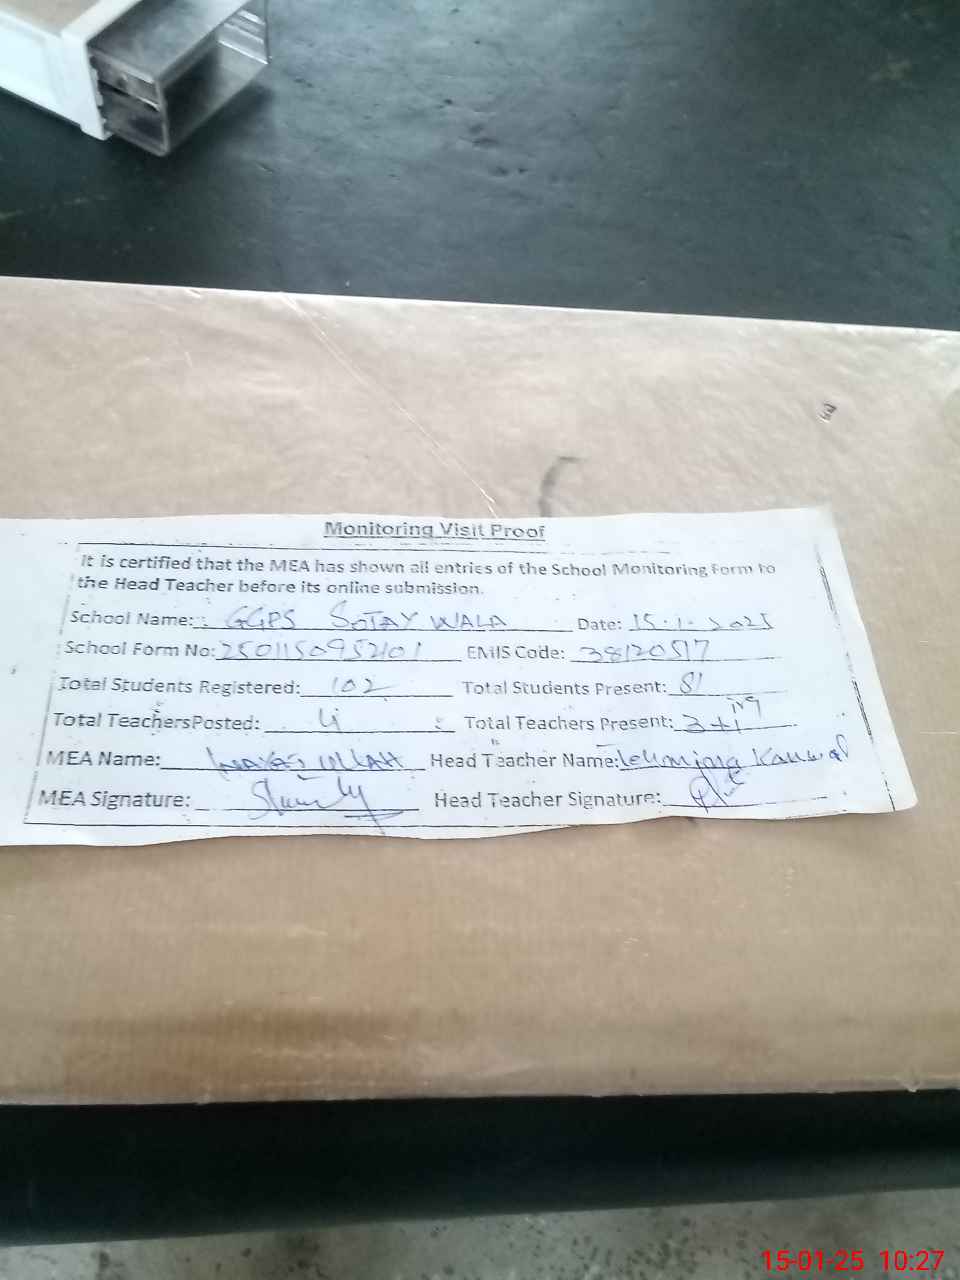 Monitoring Visit Proof
It is certified that the MEA has shown all entries of the School Monitoring Form to
the Head Teacher before its online submission.
School Name: GGPS SOTAY WALA Date: 15.1.2025
School Form No: 2501150952101 EMIS Code: 38120517
Total Students Registered: 102 Total Students Present: 81
Total Teachers Posted: 4 Total Teachers Present: 3+1
MEA Name: ULLAH Head Teacher Name: Kanwal
MEA Signature: Head Teacher Signature:
15-01-25 10:27